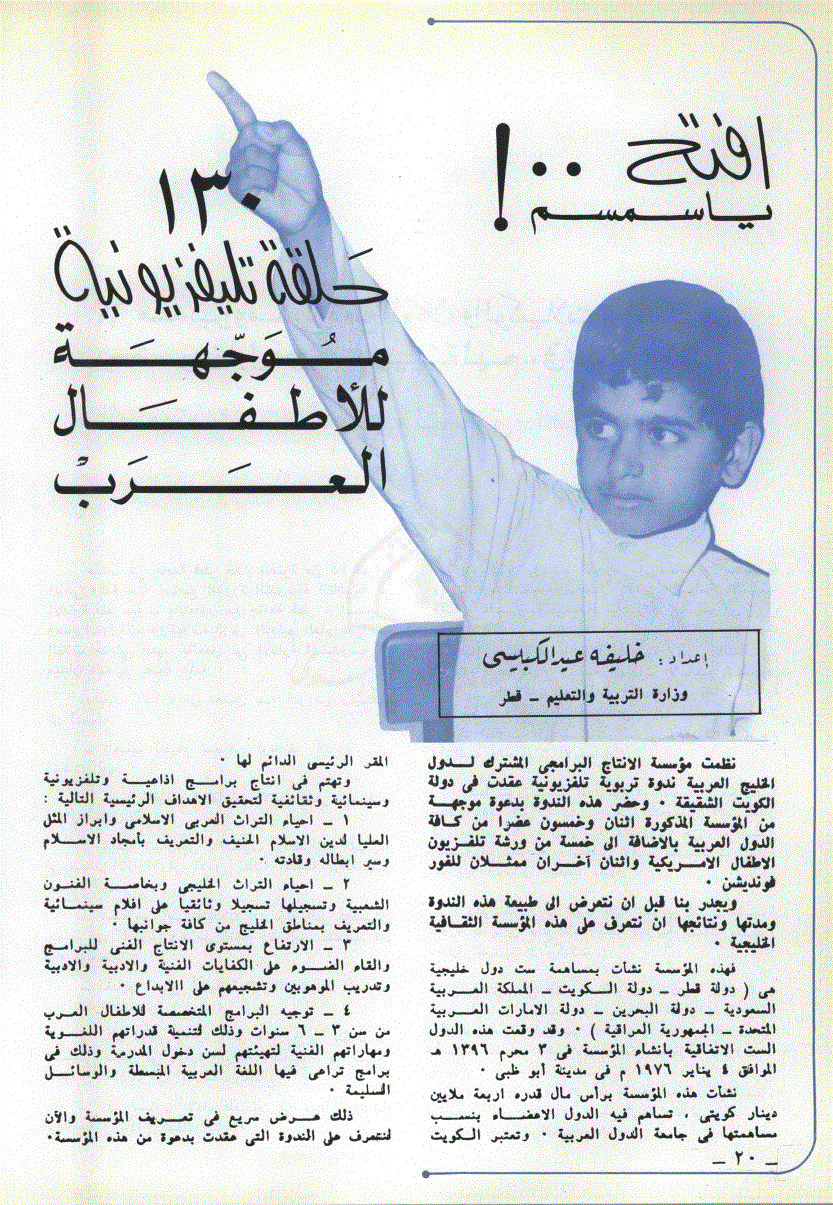 افتح ٠٠ !
ياسمسم
١٣٠
حلقة تليفزيونية
مُوَجّهَة
للأطفَال
العَرَبْ
إعداد : خليفه عيد الكبيسى
وزارة التربية والتعليم ــ قطر
نظمت مؤسسة الانتاج البرامجى المشترك لدول
الخليج العربية ندوة تربوية تلفزيونية عقدت فى دولة
الكويت الشقيقة ٠ وحضر هذه الندوة بدعوة موجهة
من المؤسسة المذكورة اثنان وخمسون عضرا من كافة
الدول العربية بالاضافة الى خمسة من ورشة تلفزيون
الاطفال الامريكية واثنان آخران ممثلان للفور
فونديشن ٠
ويجدر بنا قبل ان نتعرض الى طبيعة هذه الندوة
ومدتها ونتائجها ان نتعرف على هذه المؤسسة الثقافية
الخليجية ٠
فهذه المؤسسة نشأت بمساهمة ست دول خليجية
هى ( دولة قطر ــ دولة الكويت ــ المملكة العربية
السعودية ــ دولة البحرين ــ دولة الامارات العربية
المتحدة ــ الجمهورية العراقية ) ٠ وقد وقعت هذه الدول
الست الاتفاقية بانشاء المؤسسة فى ٣ محرم ١٣٩٦ هـ
الموافق ٤ يناير ١٩٧٦ م فى مدينة أبو ظبى ٠
نشأت هذه المؤسسة برأس مال قدره اربعة ملايين
دينار كويتى ، تساهم فيه الدول الاعضاء بنسب
مساهمتها فى جامعة الدول العربية ٠ وتعتبر الكويت
المقر الرئيسى الدائم لها ٠
وتهتم فى انتاج برامج اذاعية وتلفزيونية
وسينمائية وثقائفية لتحقيق الاهداف الرئيسية التالية :
١ ــ احياء التراث العربى الاسلامى وابراز المثل
العليا لدين الاسلام الحنيف والتعريف بأمجاد الاسلام
وسير ابطاله وقادته ٠
٢ ــ احياء التراث الخليجى وبخاصة الفنون
الشعبية وتسجيلها تسجيلا وثائقيا على افلام سينمائية
والتعريف بمناطق الخليج من كافة جوانبها ٠
٣ ــ الارتفاع بمستوى الانتاج الفنى للبرامج
والقاء الضوء على الكفايات الفنية والادبية والادبية
وتدريب الموهوبين وتشجيعهم على االابداع ٠
٤ ــ توجيه البرامج المتخصصة للاطفال العرب
من سن ٣ ــ ٦ سنوات وذلك لتنمية قدراتهم اللغوية
ومهاراتهم الفنية لتهيئتهم لسن دخول المدرمة وذلك فى
برامج تراعى فيها اللغة العربية المبسطة والوسائل
السليمة ٠
ذلك عرض سريع فى تعريف المؤسسة والآن
لنتعرف على الندوة التى عقدت بدعوة من هذه المؤسسة٠
ــ ٢٠ ــ